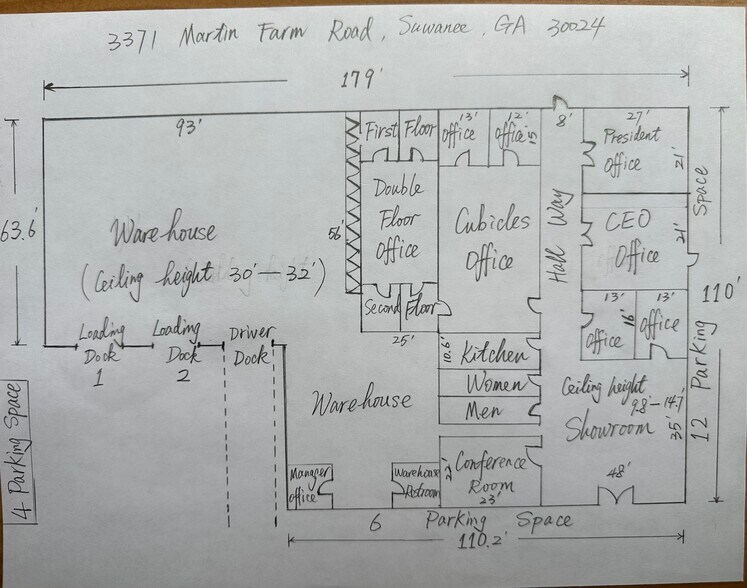 3371 Martin Farm Road, Suwanee, GA 30024
179'
93'
63.6'
Warehouse
(Ceiling height 30'-32')
56'
First Floor
Double
Floor
Office
Second Floor
25'
13'
Office
12'
Office
15'
8'
Hall Way
27'
President
Office
21'
Cubicles
Office
CEO
Office
21'
13'
Office
16'
13'
Office
Loading
Dock
1
Loading
Dock
2
Driver
Dock
Warehouse
10.6'
Kitchen
Women
Men
Ceiling height
9.8'-14.7'
Showroom
35'
48'
Manager
office
Warehouse
Restroom
22'
Conference
Room
23'
4 Parking Space
6 Parking Space
110.2'
12 Parking Space
110'